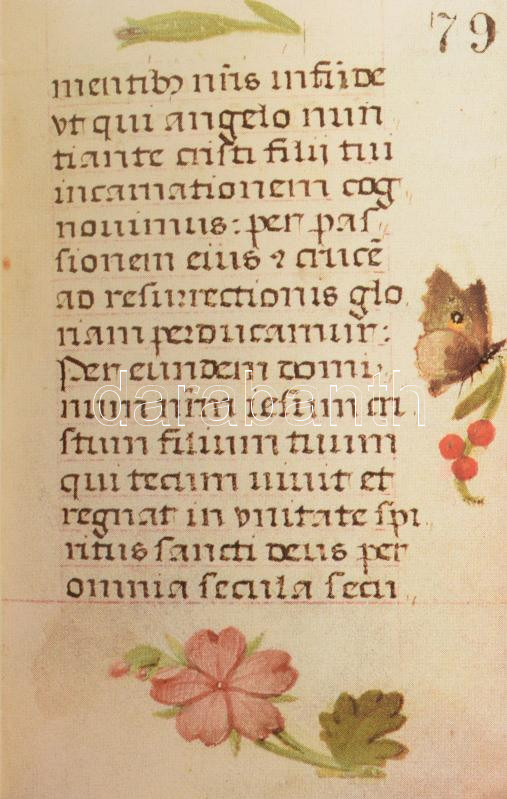 79
mentibꝫ nr̄is infūde
vt qui angelo nun
tiante cristi filij tui
incarnationem cog
nouimus: per pas
sionem eius ⁊ crucē
ad resurrectionis glo
riam perducamur:
Per eundem domi
num nr̄m iesum cri
stum filium tuum
qui tecum viuit et
regnat in vnitate spi
ritus sancti deus per
omnia secula secu
darabanth